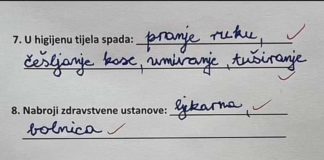 7. U higijenu tijela spada: pranje ruku,
češljanje kose, umivanje, tuširanje
8. Nabroji zdravstvene ustanove: ljekarna,
bolnica